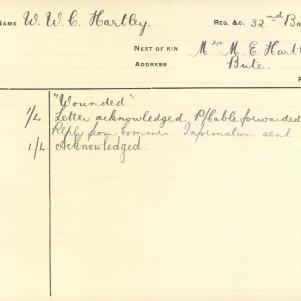 NAME W. W. C. Hartley. REG. &C. 32nd Ba
NEXT OF KIN Mrs M. E. Hartl
ADDRESS Bute.
"Wounded"
1/L Letter acknowledged. P/Cable forwarded
Reply from Commrs. Information sent
1/L Acknowledged.